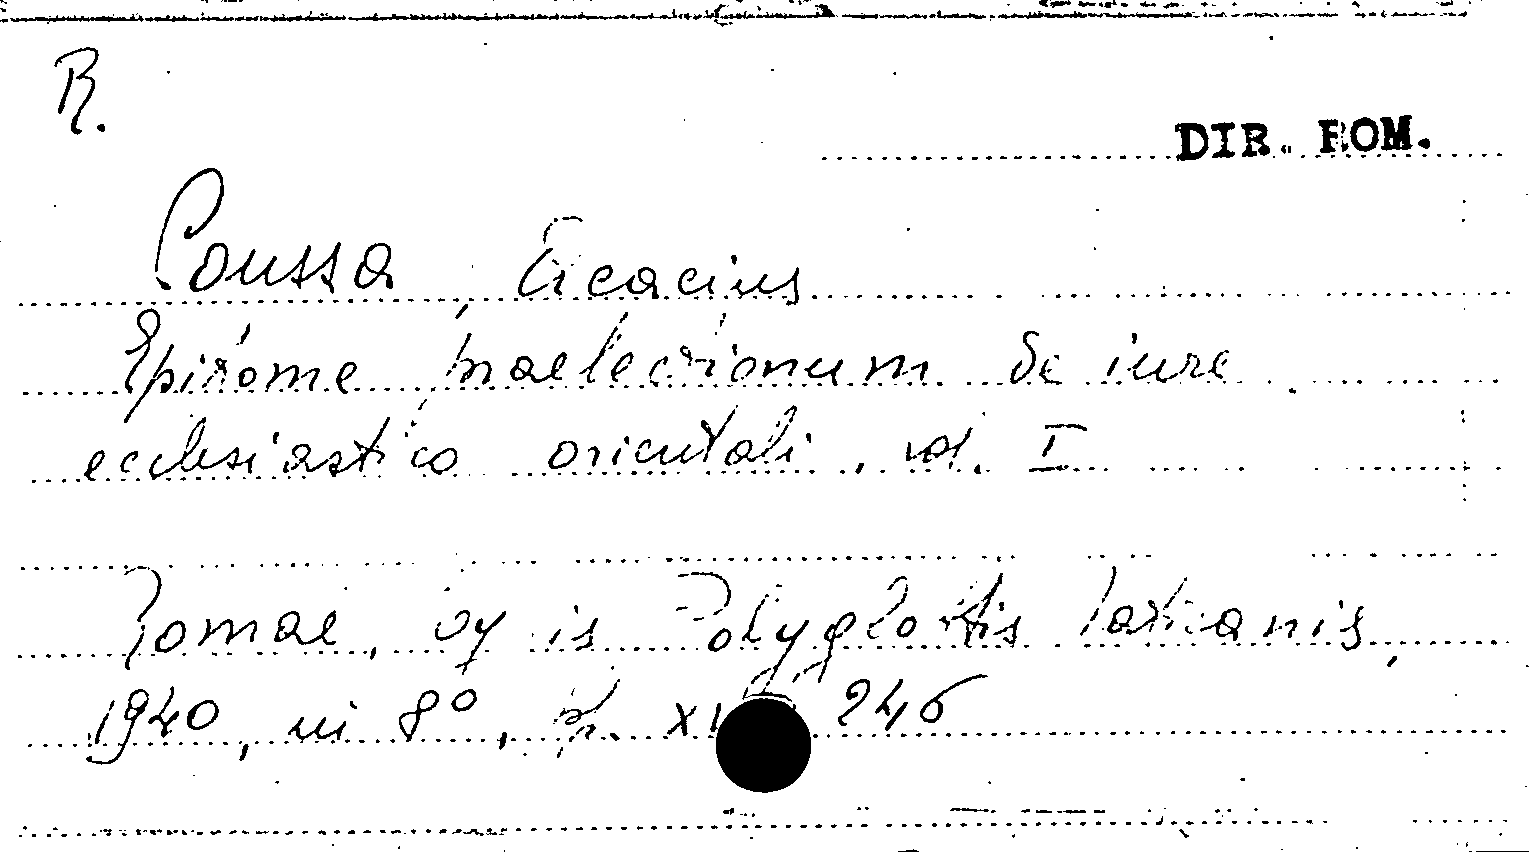 R.
DIR. ROM.
Coussa, Acacius
Epitome praelectionum de iure
ecclesiastico orientali, vol. I
Romae, Typis Polyglottis Vaticanis,
1940, in 8°, p. 246